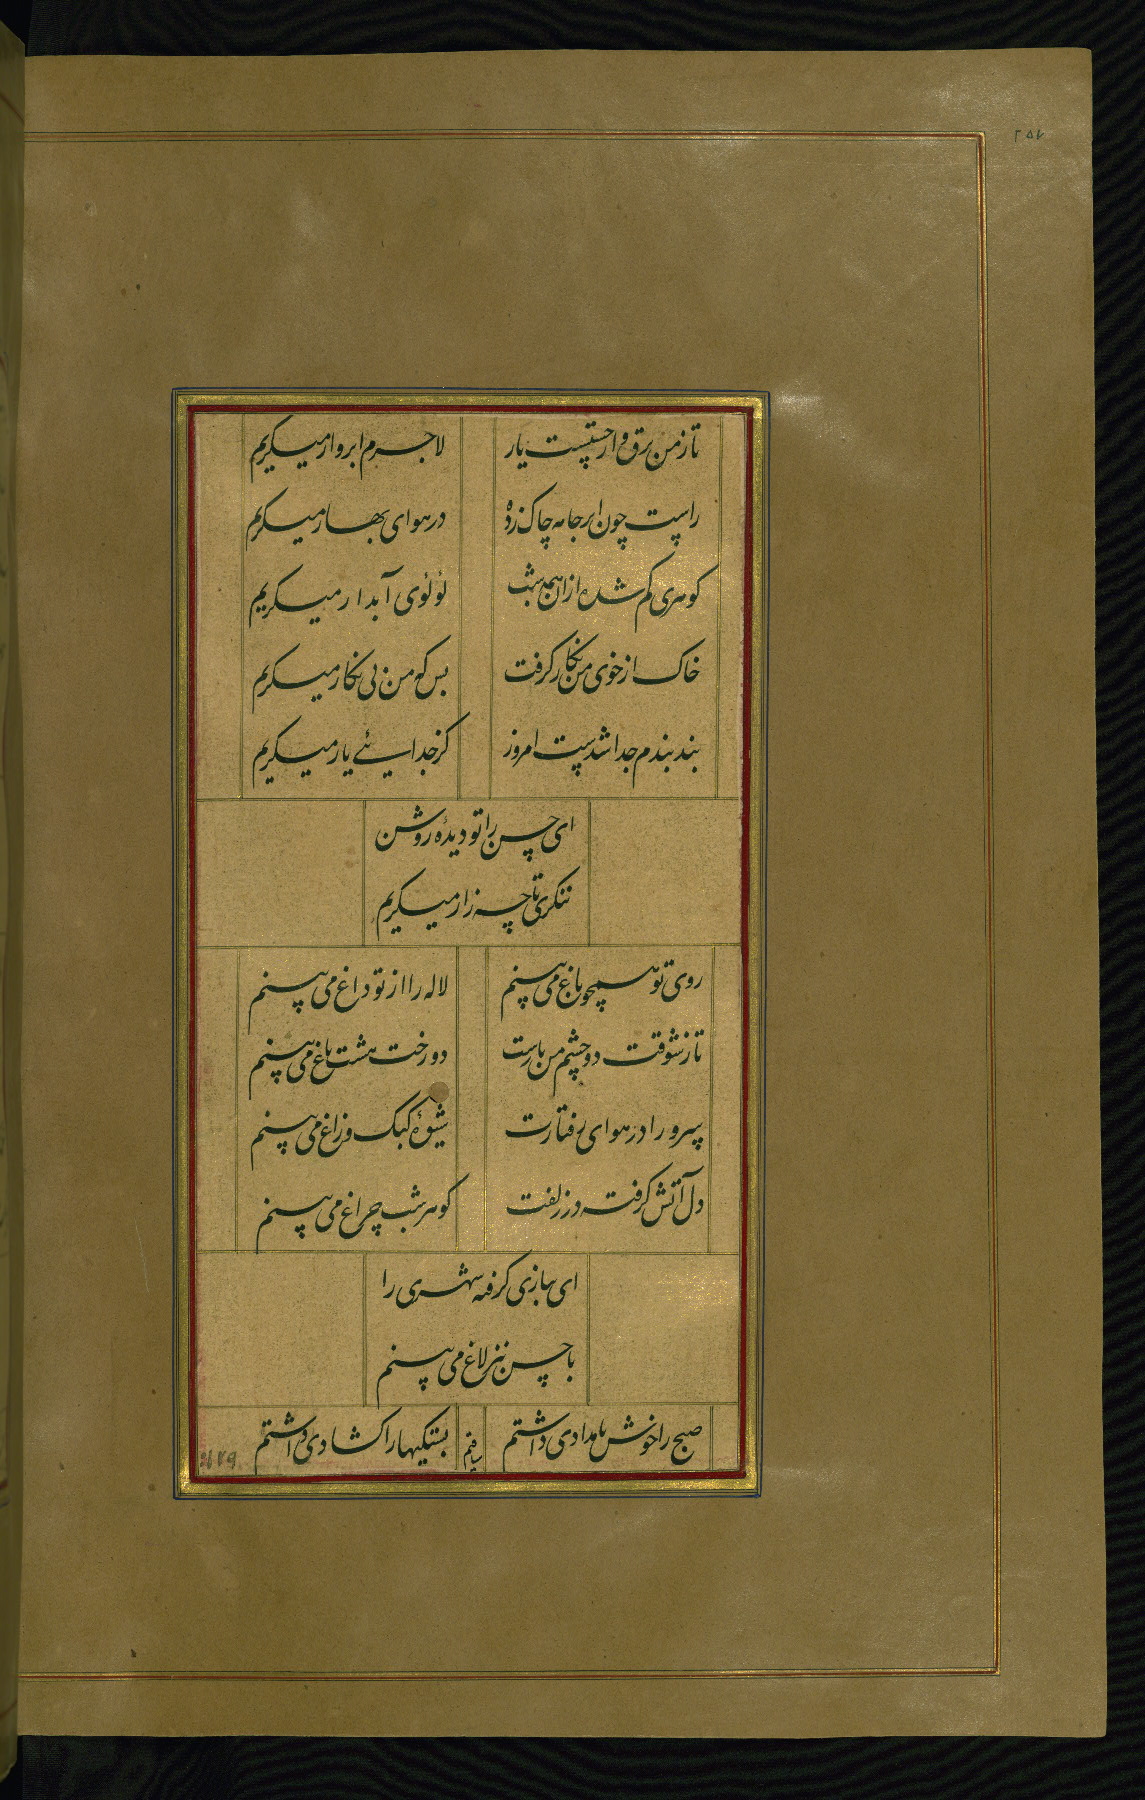 ۲۵۷
تا ز من برق وار جستست یار لاجرم ابروار میکریم
راست چون ابر جامه چاک زده در هوای بهار میکریم
کوهری کم شده از آن همه شب لؤلؤی آبدار میکریم
خاک از خوی من نکار کرفت بس که من بی نکار میکریم
بند بندم جدا شدست امروز کز جدایئے یار میکریم
ای حسن را تو دیدهٔ روشن
ننکری تا چه زار میکریم
روی تو همچو باغ می بینم لاله را از تو داغ می بینم
تا ز شوقت دو چشم من بارست دو رخت هشت باغ می بینم
سرو را در هوای رفتارت شیوهٔ کبک و زاغ می بینم
دل آتش کرفته در زلفت کوهر شب چراغ می بینم
ای ببازی کرفته شهری را
با حسن نیز لاغ می بینم
صبح را خوش بامدادی داشتم بستکیها را کشادی داشتم